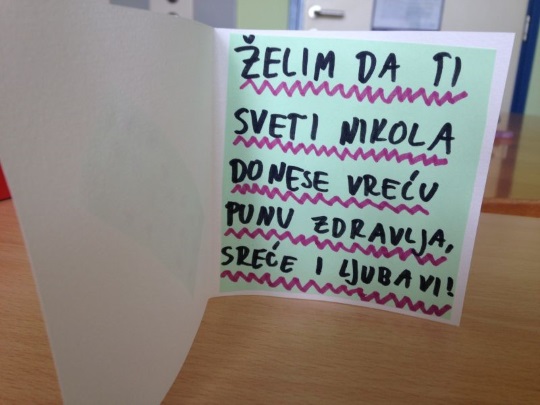 ŽELIM DA TI
SVETI NIKOLA
DONESE VREĆU
PUNU ZDRAVLJA,
SREĆE I LJUBAVI!